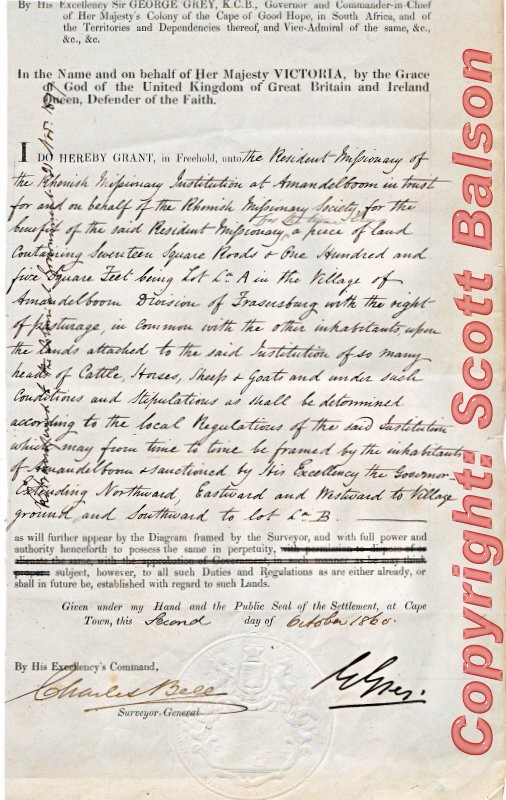 By His Excellency Sir GEORGE GREY, K.C.B., Governor and Commander-in-Chief
of Her Majesty's Colony of the Cape of Good Hope, in South Africa, and of
the Territories and Dependencies thereof, and Vice-Admiral of the same, &c.,
&c., &c.
In the Name and on behalf of Her Majesty VICTORIA, by the Grace
of God of the United Kingdom of Great Britain and Ireland
Queen, Defender of the Faith.
I DO HEREBY GRANT, in Freehold, unto the Resident Missionary of
the Rhenish Missionary Institution at Amandelboom in trust
for and on behalf of the Rhenish Missionary Society, for the
benefit of the said Resident Missionary, a piece of land
Containing Seventeen Square Roods & One Hundred and
five Square Feet being Lot La A in the Village of
Amandelboom Division of Frasersburg with the right
of pasturage, in common with the other inhabitants, upon
the lands attached to the said Institution of so many
heads of Cattle, Horses, Sheep & Goats and under such
Conditions and Stipulations as shall be determined
according to the local Regulations of the said Institution
which may from time to time be framed by the inhabitants
of Amandelboom & sanctioned by His Excellency the Governor
Extending Northward, Eastward and Westward to Village
ground, and Southward to lot La B.
as will further appear by the Diagram framed by the Surveyor, and with full power and
authority henceforth to possess the same in perpetuity, with permission to dispose of or
subject, however, to all such Duties and Regulations as are either already, or
shall in future be, established with regard to such Lands.
Given under my Hand and the Public Seal of the Settlement, at Cape
Town, this Second day of October 1860.
By His Excellency's Command,
Charles Bell
G Grey.
Surveyor-General
Copyright: Scott Balson